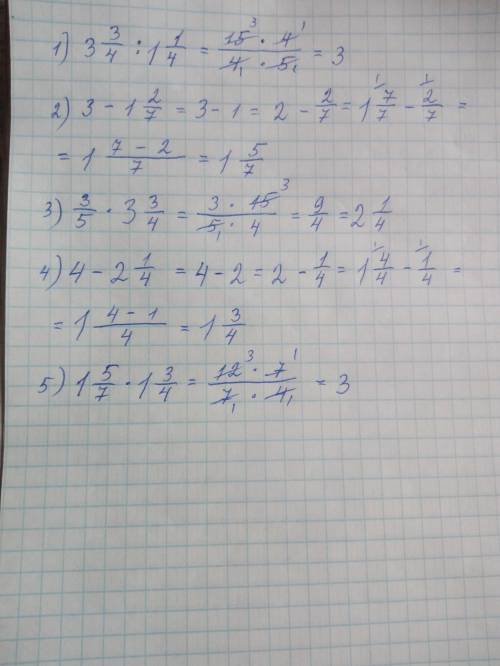 1) 3 3/4 : 1 1/4 = 15³ · 4¹ / 4₁ · 5₁ = 3
2) 3 - 1 2/7 = 3 - 1 = 2 - 2/7 = 1 7/7 - 2/7 =
= 1 7 - 2 / 7 = 1 5/7
3) 3/5 · 3 3/4 = 3 · 15³ / 5₁ · 4 = 9/4 = 2 1/4
4) 4 - 2 1/4 = 4 - 2 = 2 - 1/4 = 1 4/4 - 1/4 =
= 1 4 - 1 / 4 = 1 3/4
5) 1 5/7 · 1 3/4 = 12³ · 7¹ / 7₁ · 4₁ = 3